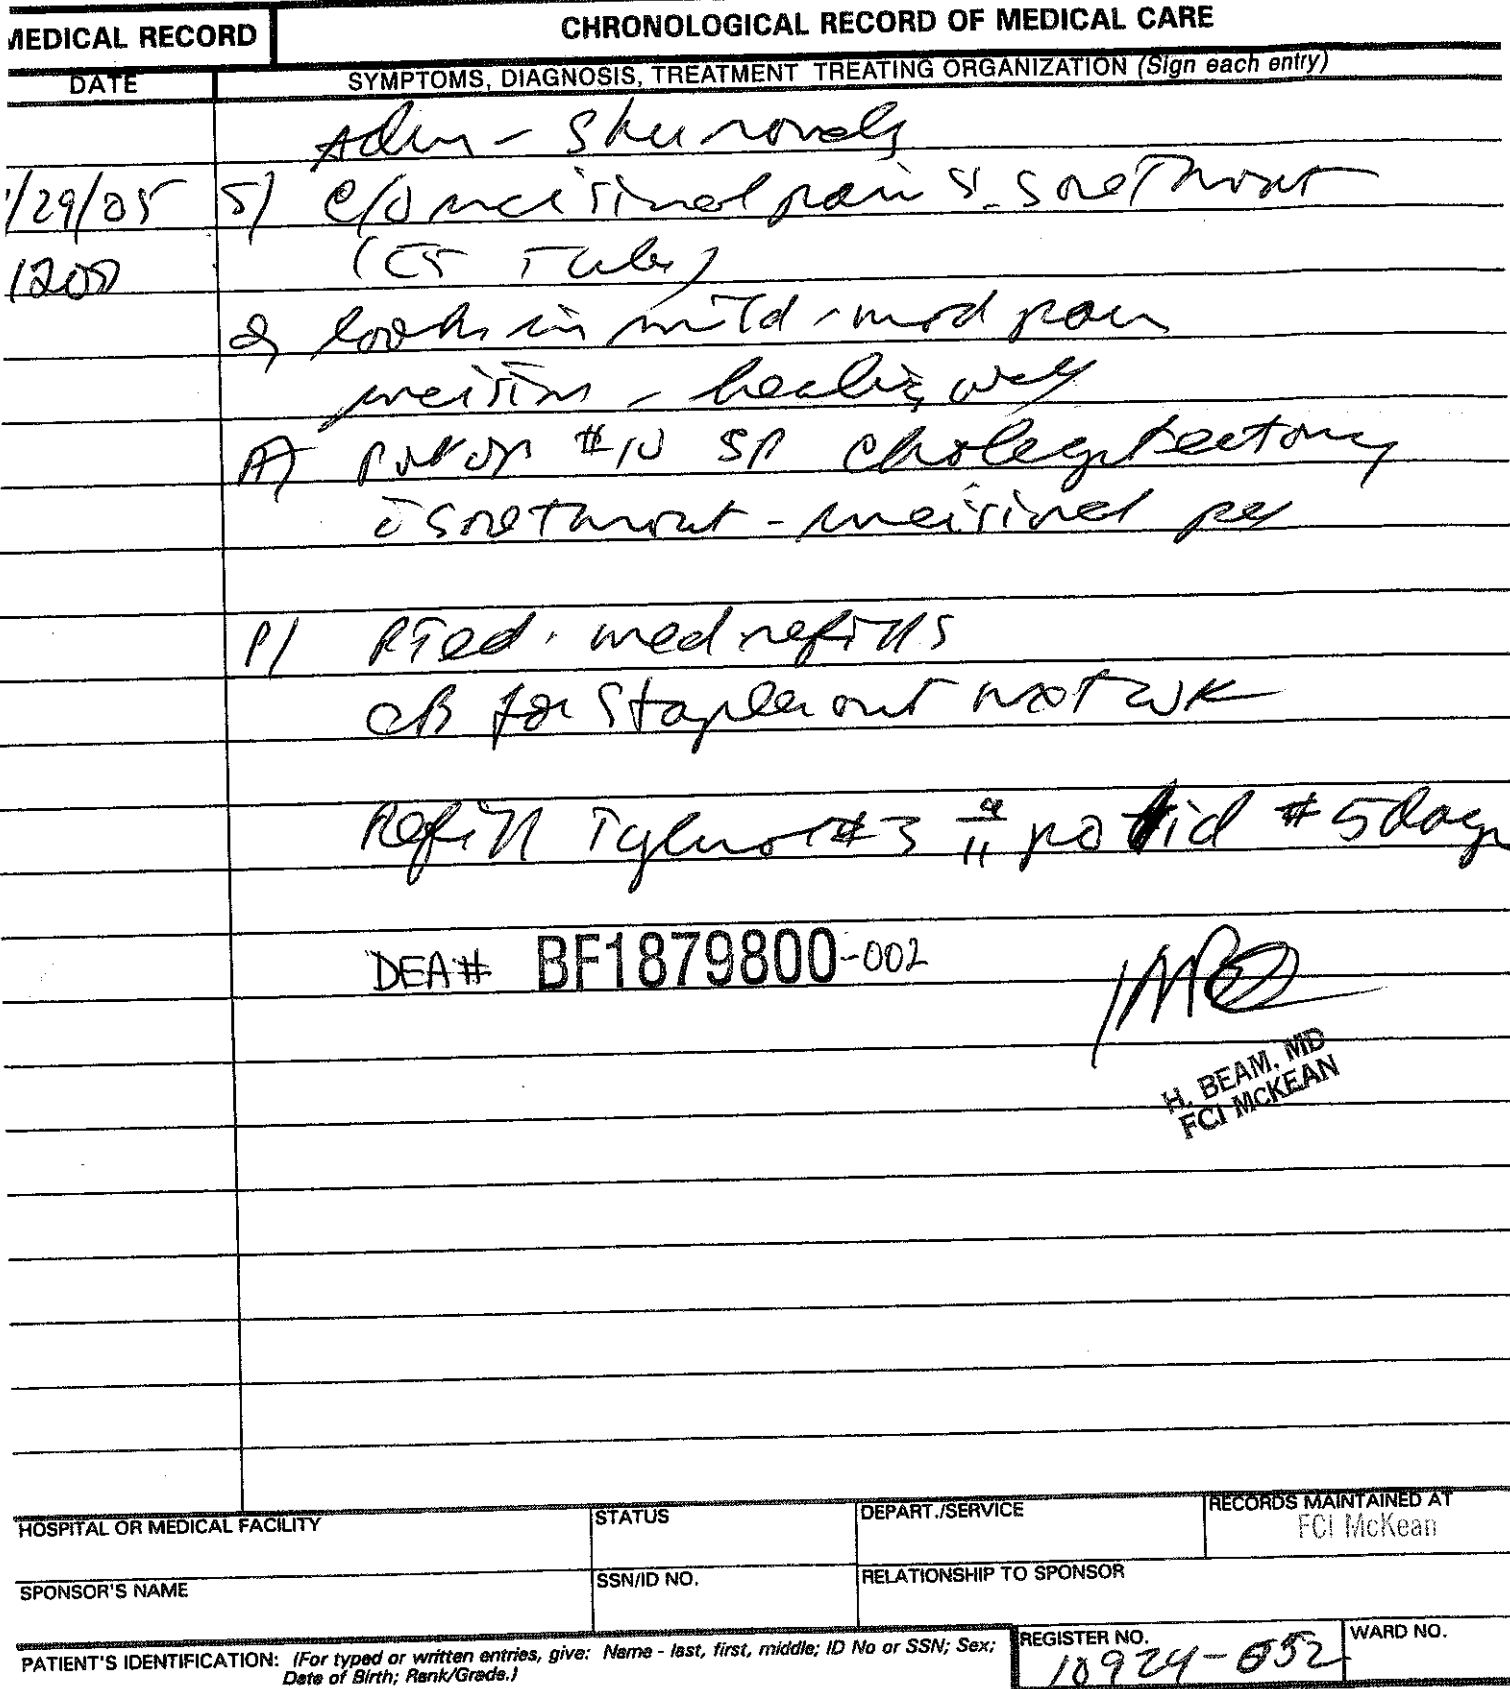 MEDICAL RECORD
CHRONOLOGICAL RECORD OF MEDICAL CARE
DATE
SYMPTOMS, DIAGNOSIS, TREATMENT TREATING ORGANIZATION (Sign each entry)
Adm -
/29/05 S/ c/o incisional pain sore throat
1200 (ET Tube)
looks in mild - mod pain
incision - healing well
A) post op #10 SP cholecystectomy
c̄ sore throat - incisional
P/ Pt ed. med refills
CB for staples out next wk
Refill Tylenol #3 ii po tid # 5 days
DEA# BF1879800-002
H. BEAM, MD
FCI MCKEAN
HOSPITAL OR MEDICAL FACILITY
STATUS
DEPART./SERVICE
RECORDS MAINTAINED AT
FCI McKean
SPONSOR'S NAME
SSN/ID NO.
RELATIONSHIP TO SPONSOR
PATIENT'S IDENTIFICATION: (For typed or written entries, give: Name - last, first, middle; ID No or SSN; Sex;
Date of Birth; Rank/Grade.)
REGISTER NO.
10924-052
WARD NO.